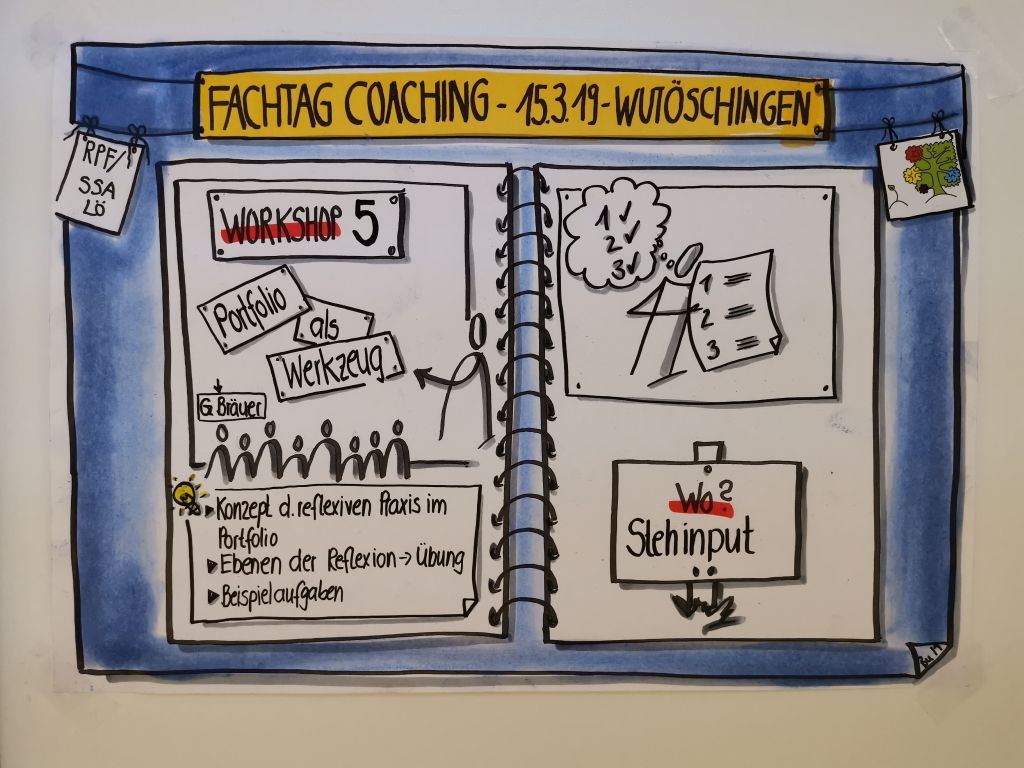 FACHTAG COACHING - 15.3.19 - WUTÖSCHINGEN
RPF/
SSA
LÖ
WORKSHOP 5
Portfolio
als
Werkzeug
G. Bräuer
Konzept d. reflexiven Praxis im
Portfolio
Ebenen der Reflexion → Übung
Beispielaufgaben
1 ✓
2 ✓
3 ✓
1
2
3
Wo?
Stehinput